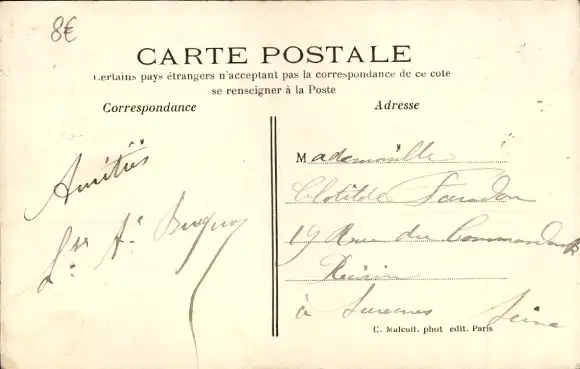 8€
CARTE POSTALE
Certains pays étrangers n'acceptant pas la correspondance de ce cote
se renseigner à la Poste
Correspondance
Amitiés
Adresse
Mademoiselle
Clotilde
19 Rue du Commandant
à Suresnes Seine
C. Malcuit. phot edit. Paris